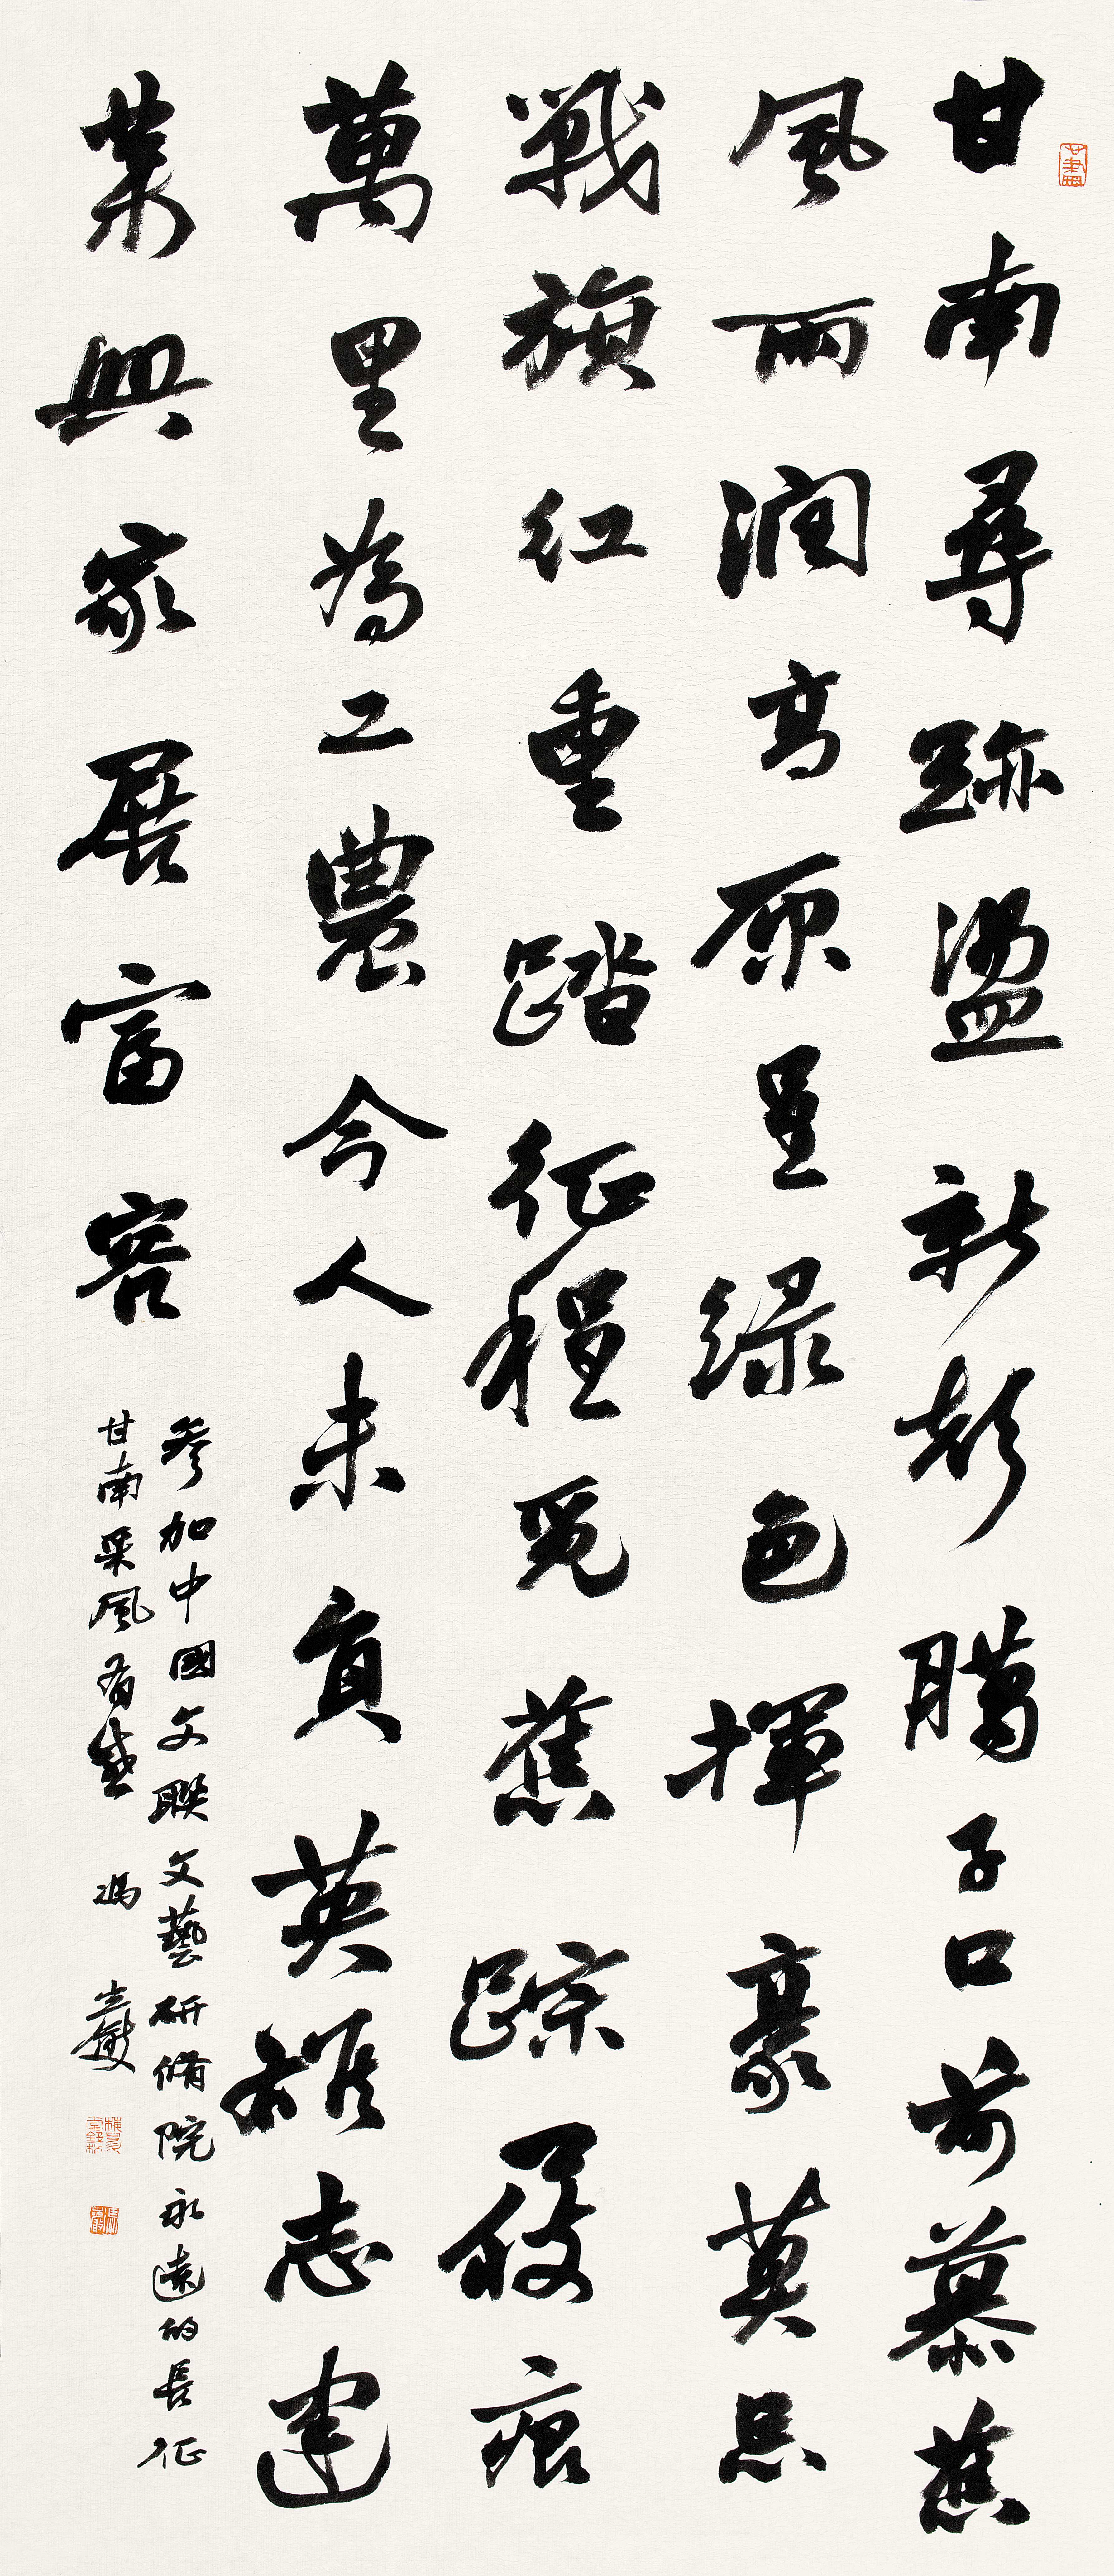 甘南尋跡盪新 臘子口前慕舊
風雨潤高原呈綠色揮豪莫忘
戰旗紅重踏征程覓舊踪履痕
萬里為工農今人未負英雄志建
業興家展富容
參加中國文聯文藝研修院永遠的長征
甘南采風有感 馮